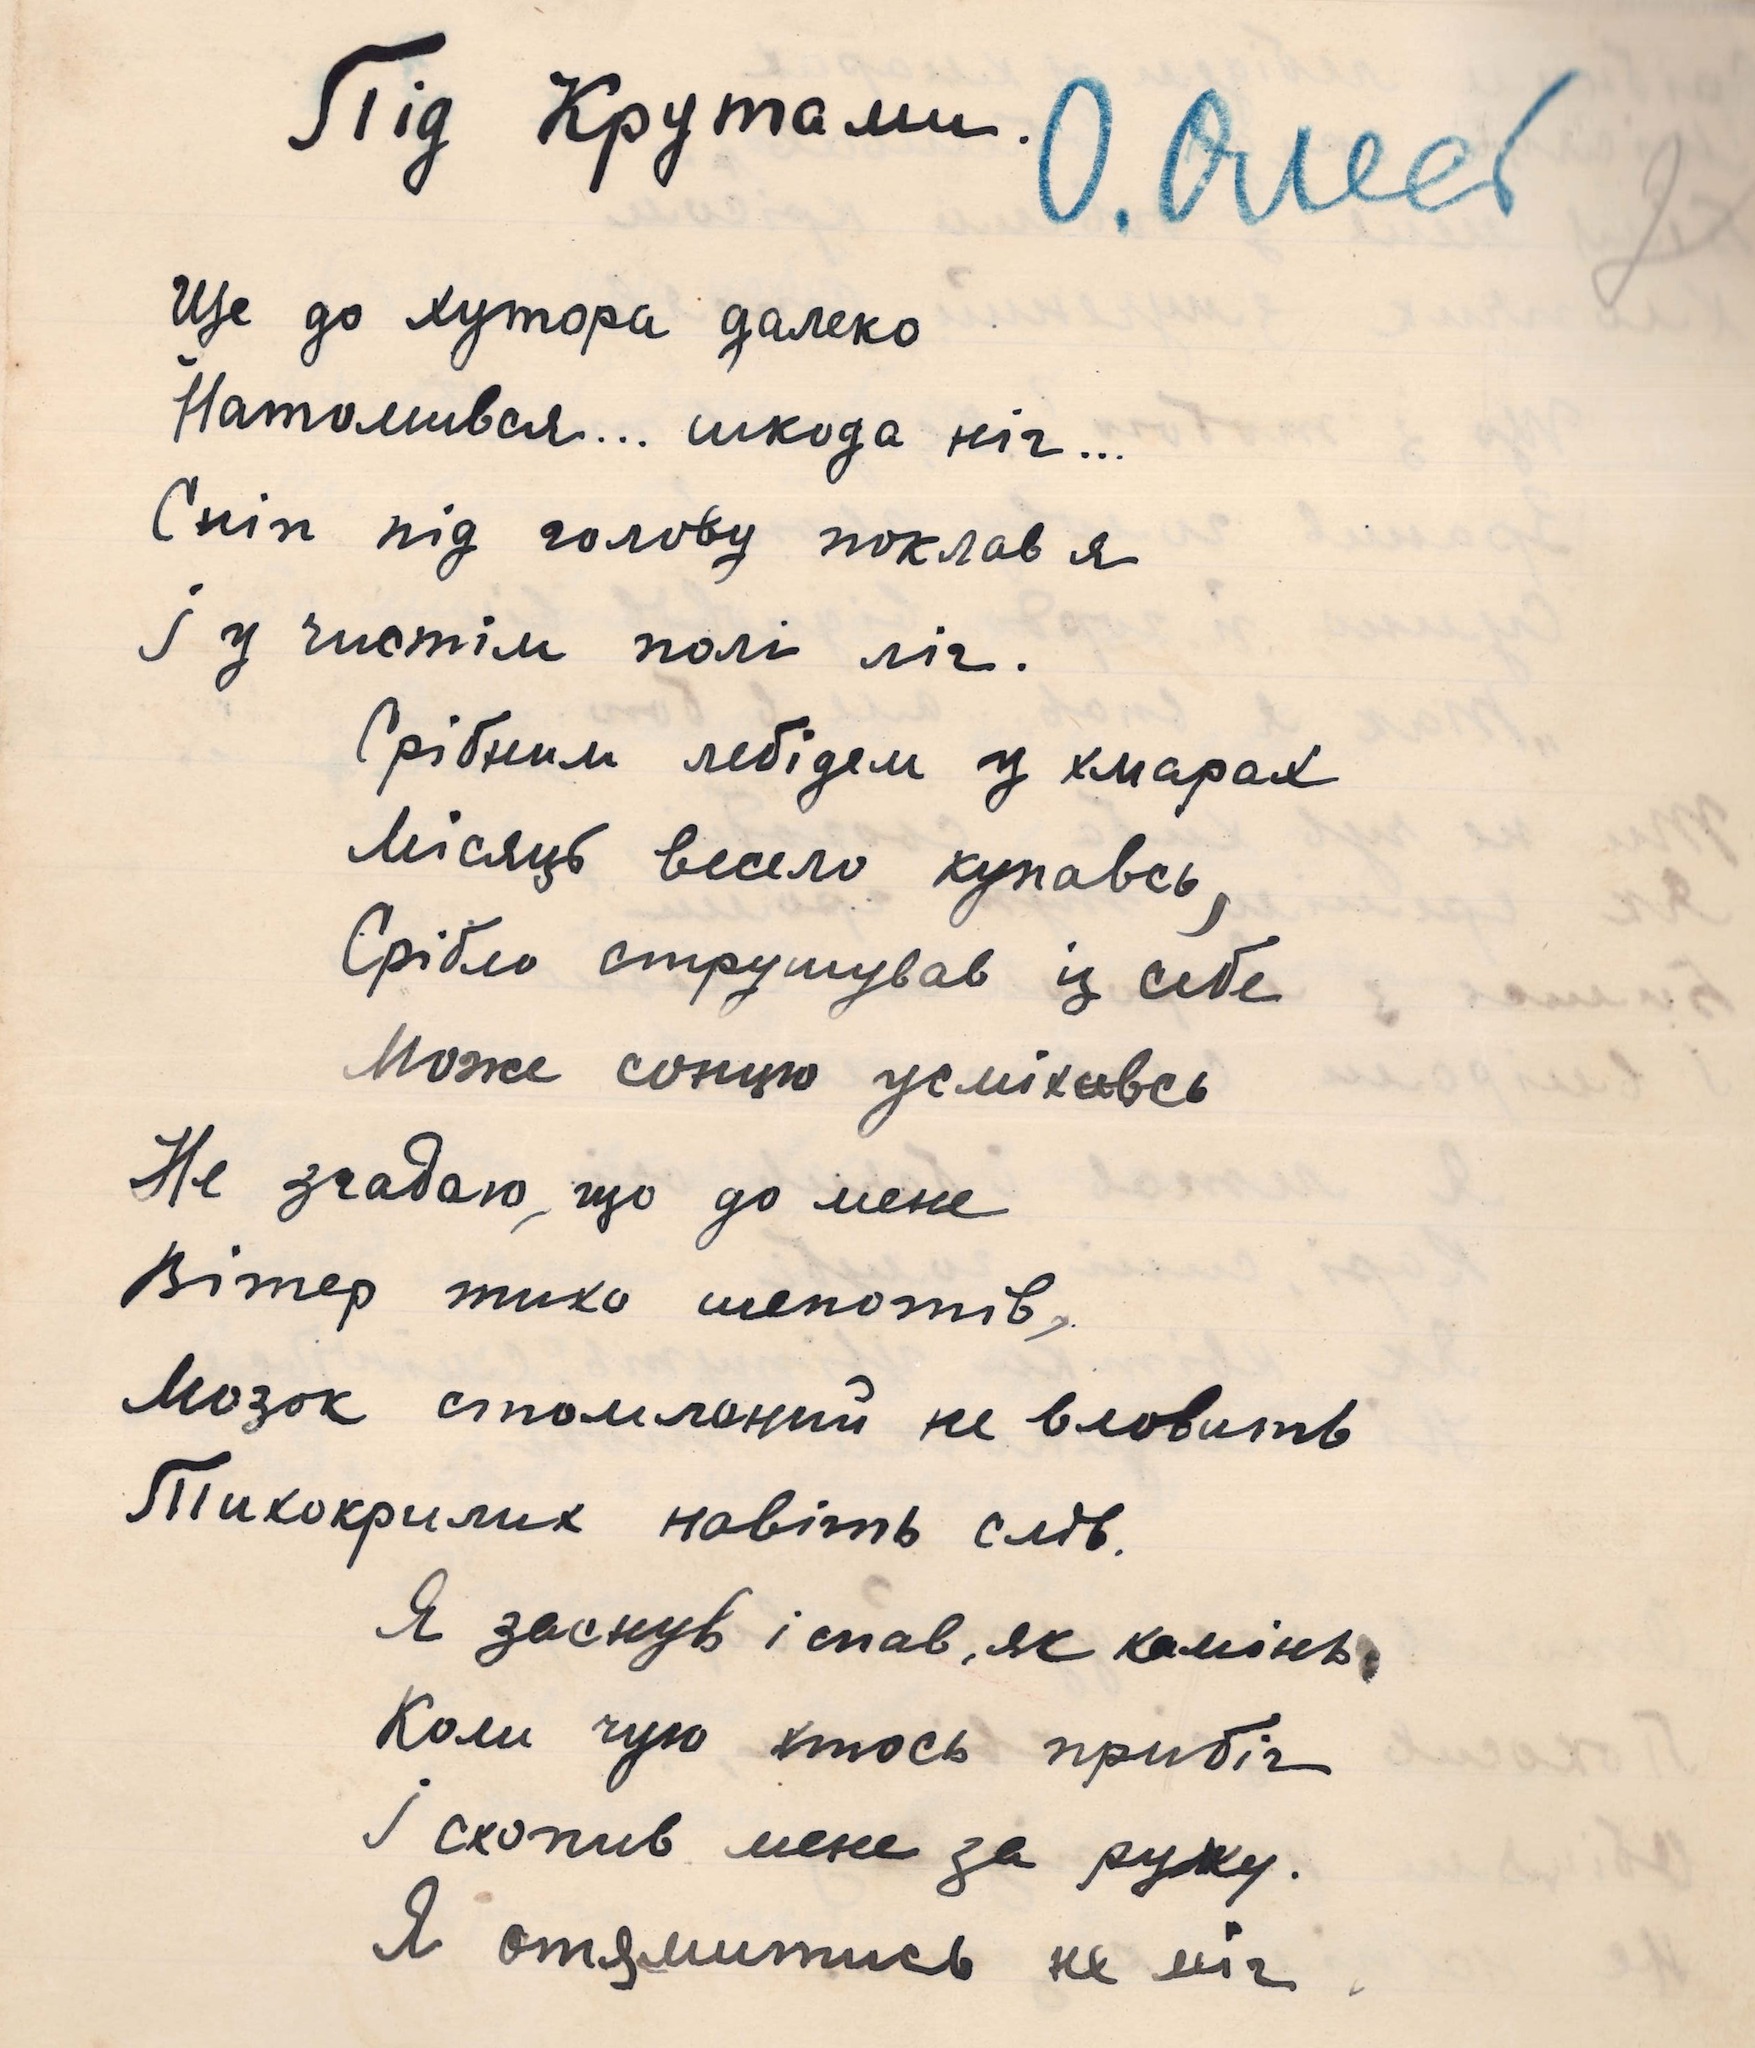 Під Крутами. О. Олесь
Ще до хутора далеко
Натомився... шкода ніг...
Сніп під голову поклав я
І у чистім полі ліг.
Срібним лебідем у хмарах
Місяць весело купавсь,
Срібло струшував із себе
Може сонцю усміхавсь
Не згадаю, що до мене
Вітер тихо шепотів,
Мозок стомлений не вловить
Тихокрилих навіть слів.
Я заснув і спав, як камінь,
Коли чую хтось прибіг
І схопив мене за руку.
Я отямитись не міг